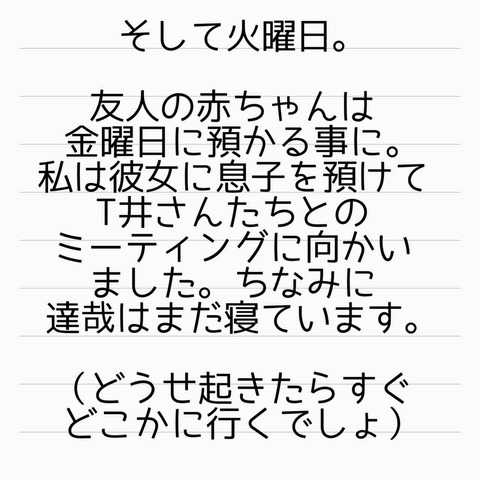 そして火曜日。
友人の赤ちゃんは
金曜日に預かる事に。
私は彼女に息子を預けて
T井さんたちとの
ミーティングに向かい
ました。ちなみに
達哉はまだ寝ています。
（どうせ起きたらすぐ
どこかに行くでしょ）